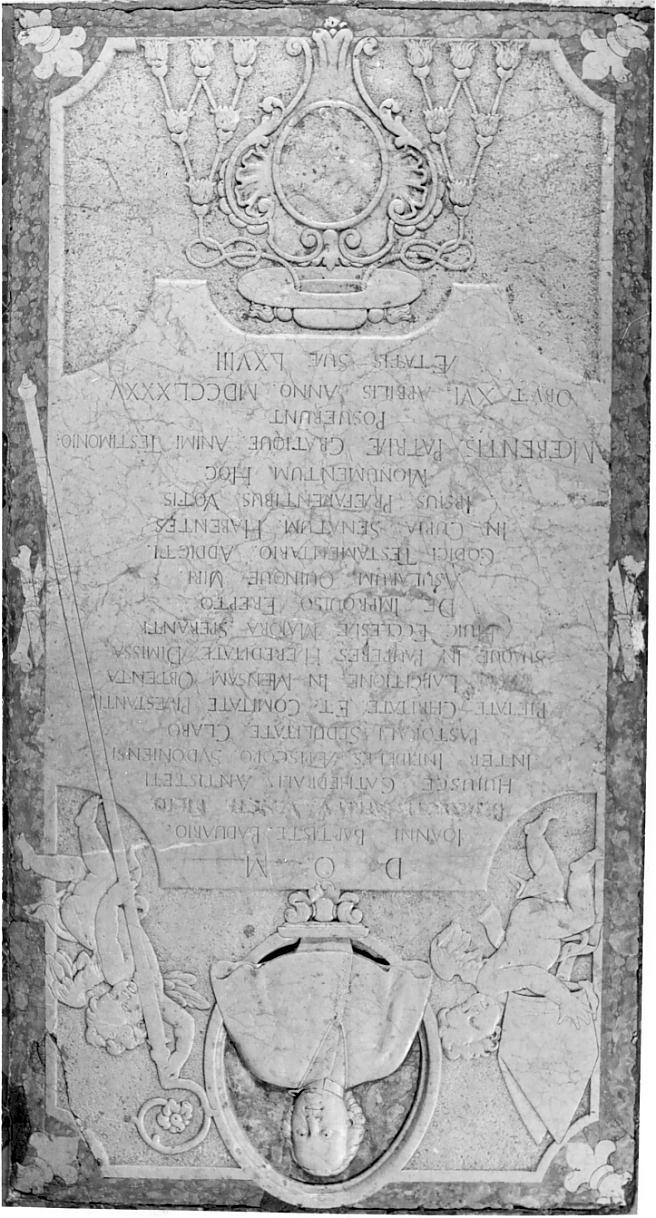 D. O. M
IOANNI BAPTISTE PADUARIO
FILIO
HUJUSCE CATHEDRALI ANTISTETI
INTER INFIDELES EPISCOPO SYDONIENSI
PASTORALI SEDULITATE CLARO
PIETATE CHRITATE ET COMITATE PRÆSTANTI
LARGITIONE IN MENSAM OBTENTA
SUAQUE IN PAUPERES HEREDITATE DIMISSA
HUIC ECCLESIÆ MAJORA SPERANTI
DE IMPROUISO EREPTO
ASULARUM QUINQUE VIRI
CODICI TESTAMENTARIO ADDICTI
IN CURIA SENATUM HABENTES
IPSIUS PRÆFARENTIBUS VOTIS
MONUMENTUM HOC
MŒRENTIS PATRIÆ GRATIQUE ANIMI TESTIMONIO
POSUERUNT
OBYT XVI APRILIS ANNO MDCCLXXXV
ÆTATIS SUÆ LXVIII